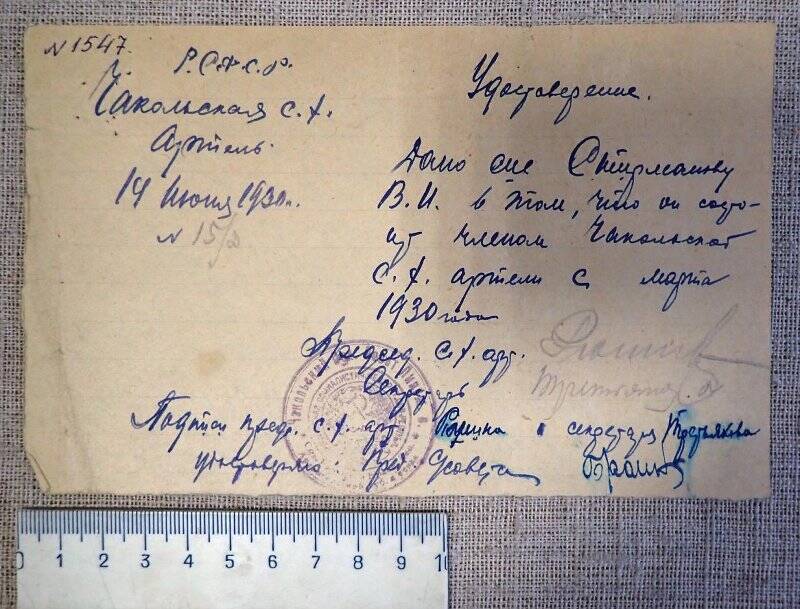 N 1547.
Р.С.Ф.С.Р.
Чакольская с.х.
Артель
14 Июня 1930г.
N 15/2
Удостоверение.
Дано сие
В.И. в том, что он состо-
ит членом Чакольской
с.х. артели с марта
1930 года
Председ. с.х. арт.
Секретарь
Подписи пред. с.х. арт. и секретаря Третьякова
удостоверяю: Пред. С/совета
0 1 2 3 4 5 6 7 8 9 10